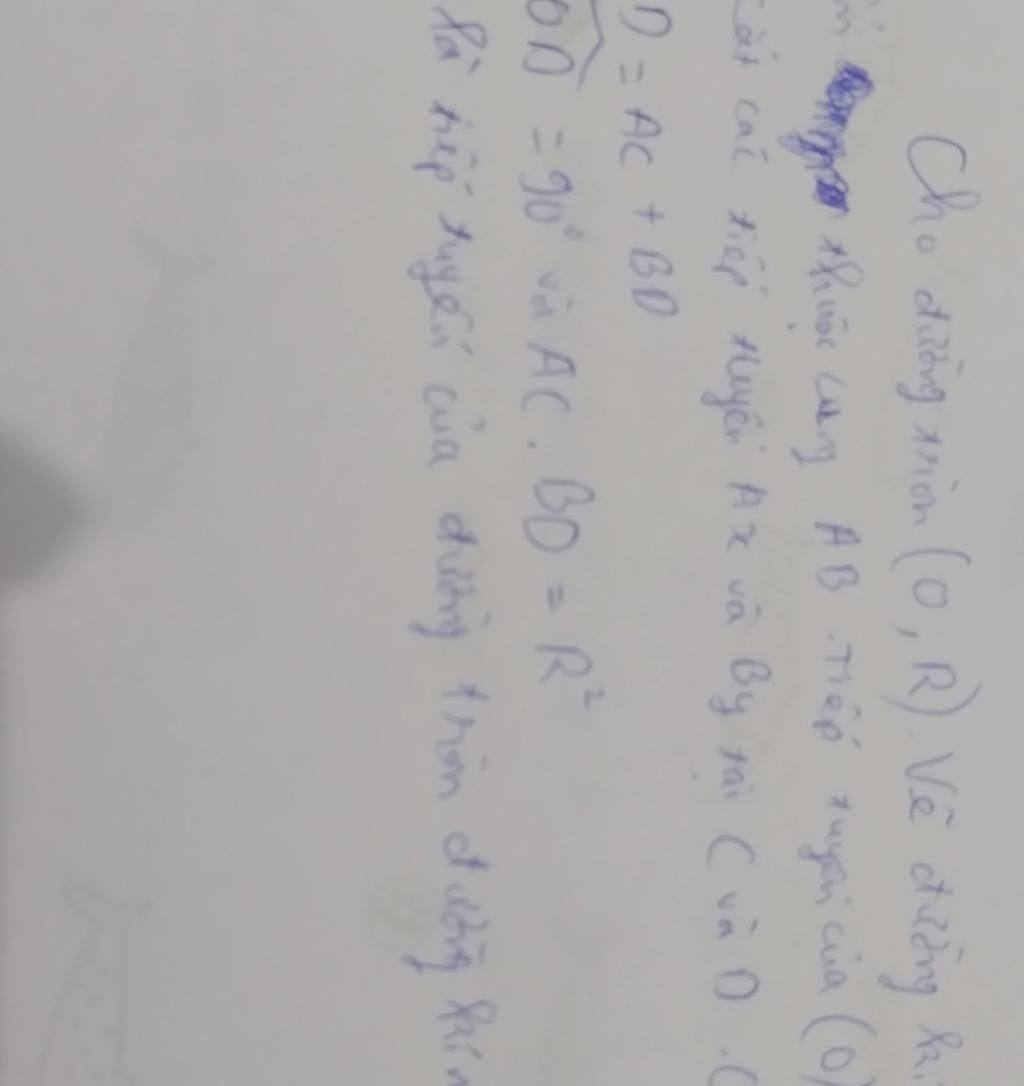 Cho đường tròn (O, R). Vẽ đường
thuộc cung AB. Tiếp tuyến của (O)
cắt các tiếp tuyến Ax và By tại C và D.
D = AC + BD
OD = 90° và AC . BD = R²
là tiếp tuyến của đường tròn đường kín